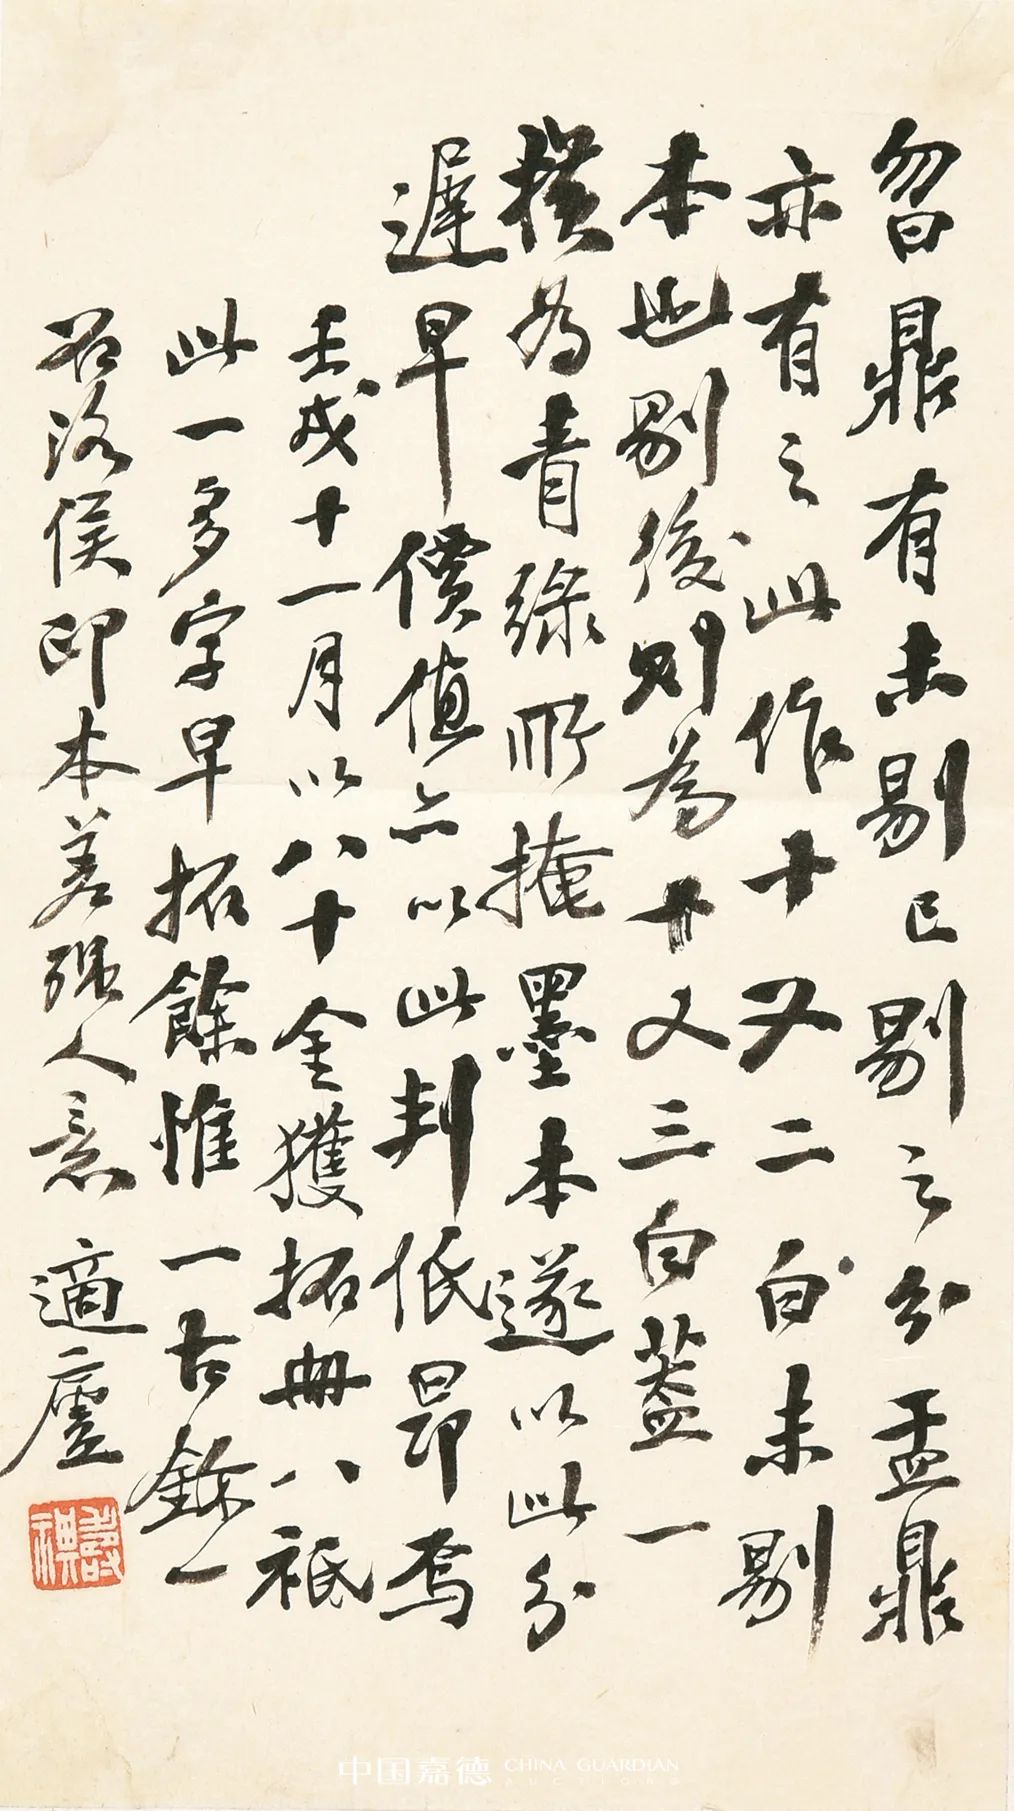 曶鼎有未剔已剔之分盂鼎
亦有之此作十又二白未剔
本也剔後則為廿又三白蓋一
橫為青綠所掩墨本遂以此分
遲早價值亦以此判低昂焉
壬戌十一月以八十金獲拓冊八祇
此一多字早拓餘惟一古鉨一
石洛侯印本差強人意 適廬
壽祺
中国嘉德 CHINA GUARDIAN
AUCTIONS